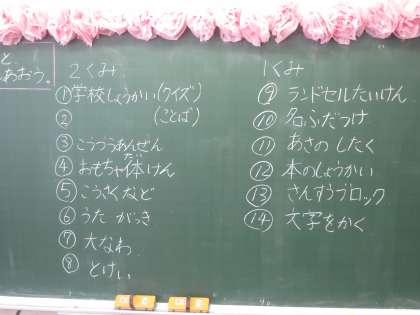 と
あおう。
2くみ
①学校しょうかい(クイズ)
② (ことば)
③こうつうあんぜん
④おもちゃだ体けん
⑤こうさくなど
⑥うた がっき
⑦大なわ
⑧とけい
1くみ
⑨ランドセルたいけん
⑩名ふだつけ
⑪あさのしたく
⑫本のしょうかい
⑬さんすうブロック
⑭文字をかく